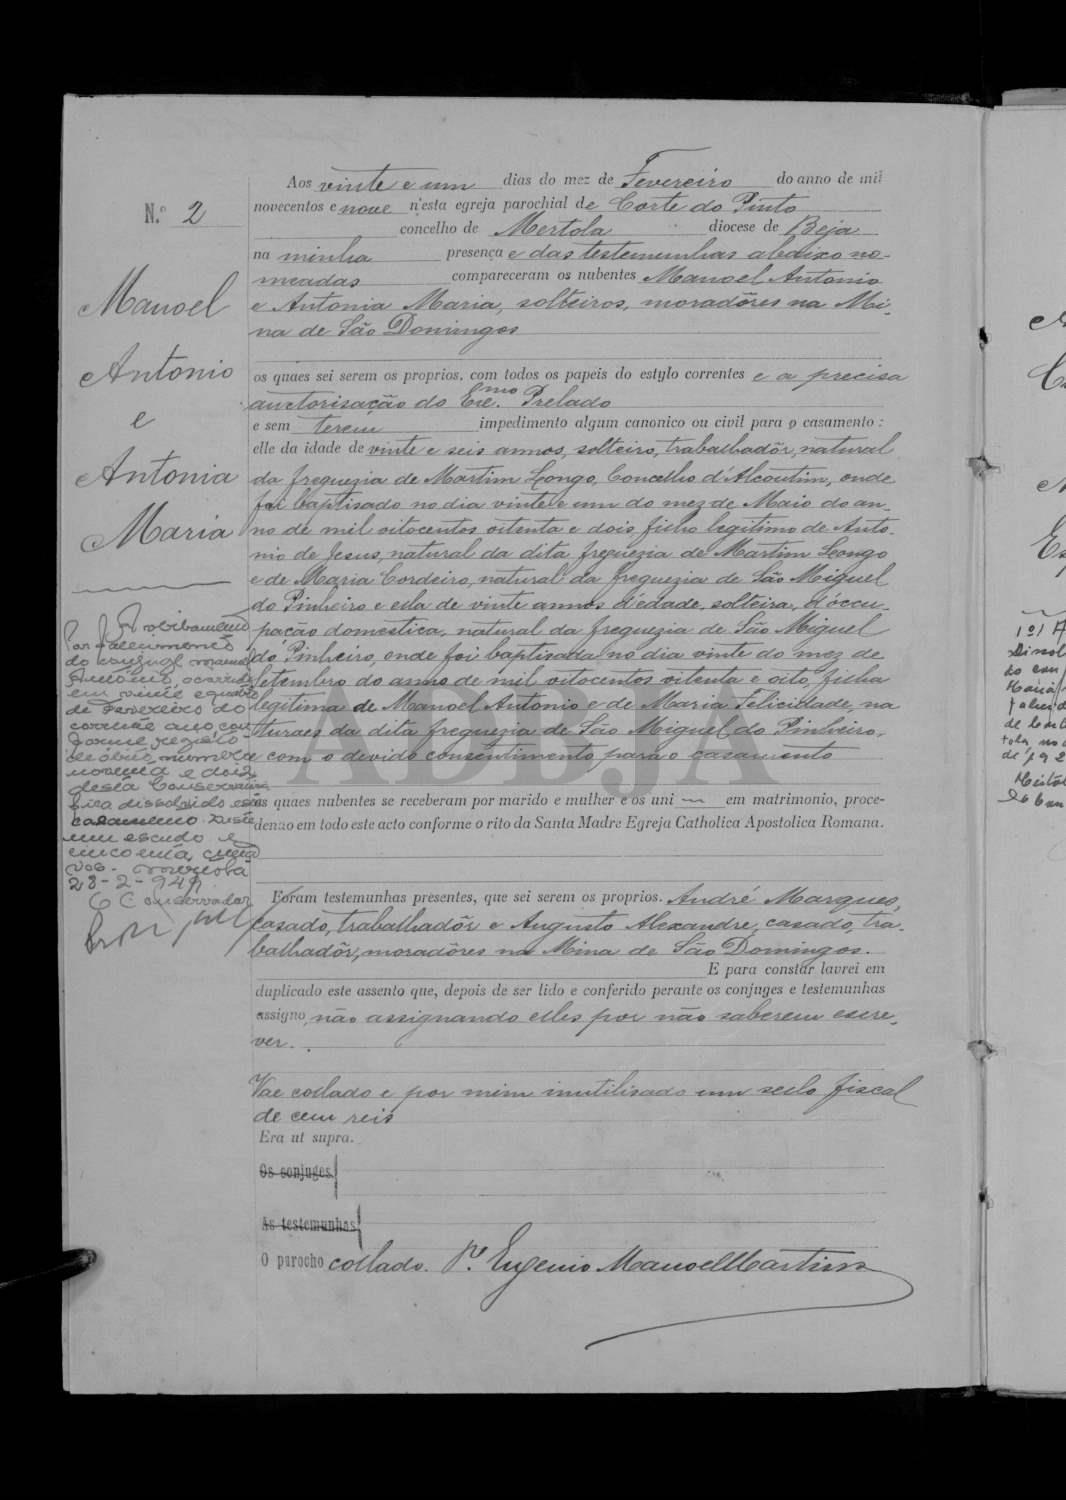 N.º 2
Manoel
Antonio
e
Antonia
Maria
Aos vinte e um dias do mez de Fevereiro do anno de mil
novecentos e nove n'esta egreja parochial de Corte do Pinto
concelho de Mertola diocese de Beja
na minha presença e das testemunhas abaixo no-
meadas compareceram os nubentes Manoel Antonio
e Antonia Maria, solteiros, moradôres na Mi-
na de São Domingos
os quaes sei serem os proprios, com todos os papeis do estylo correntes e a precisa
auctorisação do Exc.mo Prelado
e sem terem impedimento algum canonico ou civil para o casamento:
elle da idade de vinte e seis annos, solteiro, trabalhadôr, natural
da freguezia de Martim Longo, Concelho d'Alcoutim, onde
foi baptisado no dia vinte e um do mez de Maio do an-
no de mil oitocentos oitenta e dois, filho legitimo de Anto-
nio de Jesus, natural da dita freguezia de Martim Longo
e de Maria Cordeiro, natural da freguezia de São Miguel
do Pinheiro e ella de vinte annos d'edade, solteira, d'occu-
pação domestica, natural da freguezia de São Miguel
do Pinheiro, onde foi baptisada no dia vinte do mez de
Setembro do anno de mil oitocentos oitenta e oito, filha
legitima de Manoel Antonio e de Maria Felicidade, na
turaes da dita freguezia de São Miguel do Pinheiro,
e com o devido consentimento para o casamento
os quaes nubentes se receberam por marido e mulher e os uni em matrimonio, proce-
dendo em todo este acto conforme o rito da Santa Madre Egreja Catholica Apostolica Romana.
Foram testemunhas presentes, que sei serem os proprios, André Marques,
casado, trabalhadôr e Augusto Alexandre, casado, tra-
balhadôr, moradôres na Mina de São Domingos.
E para constar lavrei em
duplicado este assento que, depois de ser lido e conferido perante os conjuges e testemunhas
assigno, não assignando elles por não saberem escre-
ver.
Vae collado e por mim inutilisado um sello fiscal
de cem reis
Era ut supra.
Os conjuges
As testemunhas
O parocho collado. P.e Eugenio Manoel Martins
por falecimento
do conjuge Manoel
Antonio, ocorrido
em vinte e quatro
de Fevereiro do
corrente ano, con
forme registo
de óbito numero
noventa e dois
desta Conservatória
fica dissolvido este
casamento. Deste
um escudo e
cincoenta centa
vos. Mertola
28-2-949.
O Conservador
ADBJA